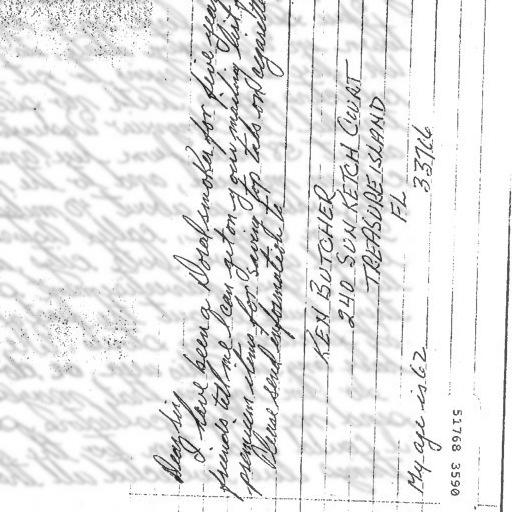 Dear Sir
I have been a Doral smoker for five year
friends tell me I can get on your mailing list for
premium items for saving top tabs on cigarette
Please send information to
KEN BUTCHER
240 SUN KETCH COURT
TREASURE ISLAND
FL 33706
My age is 62
51768 3590